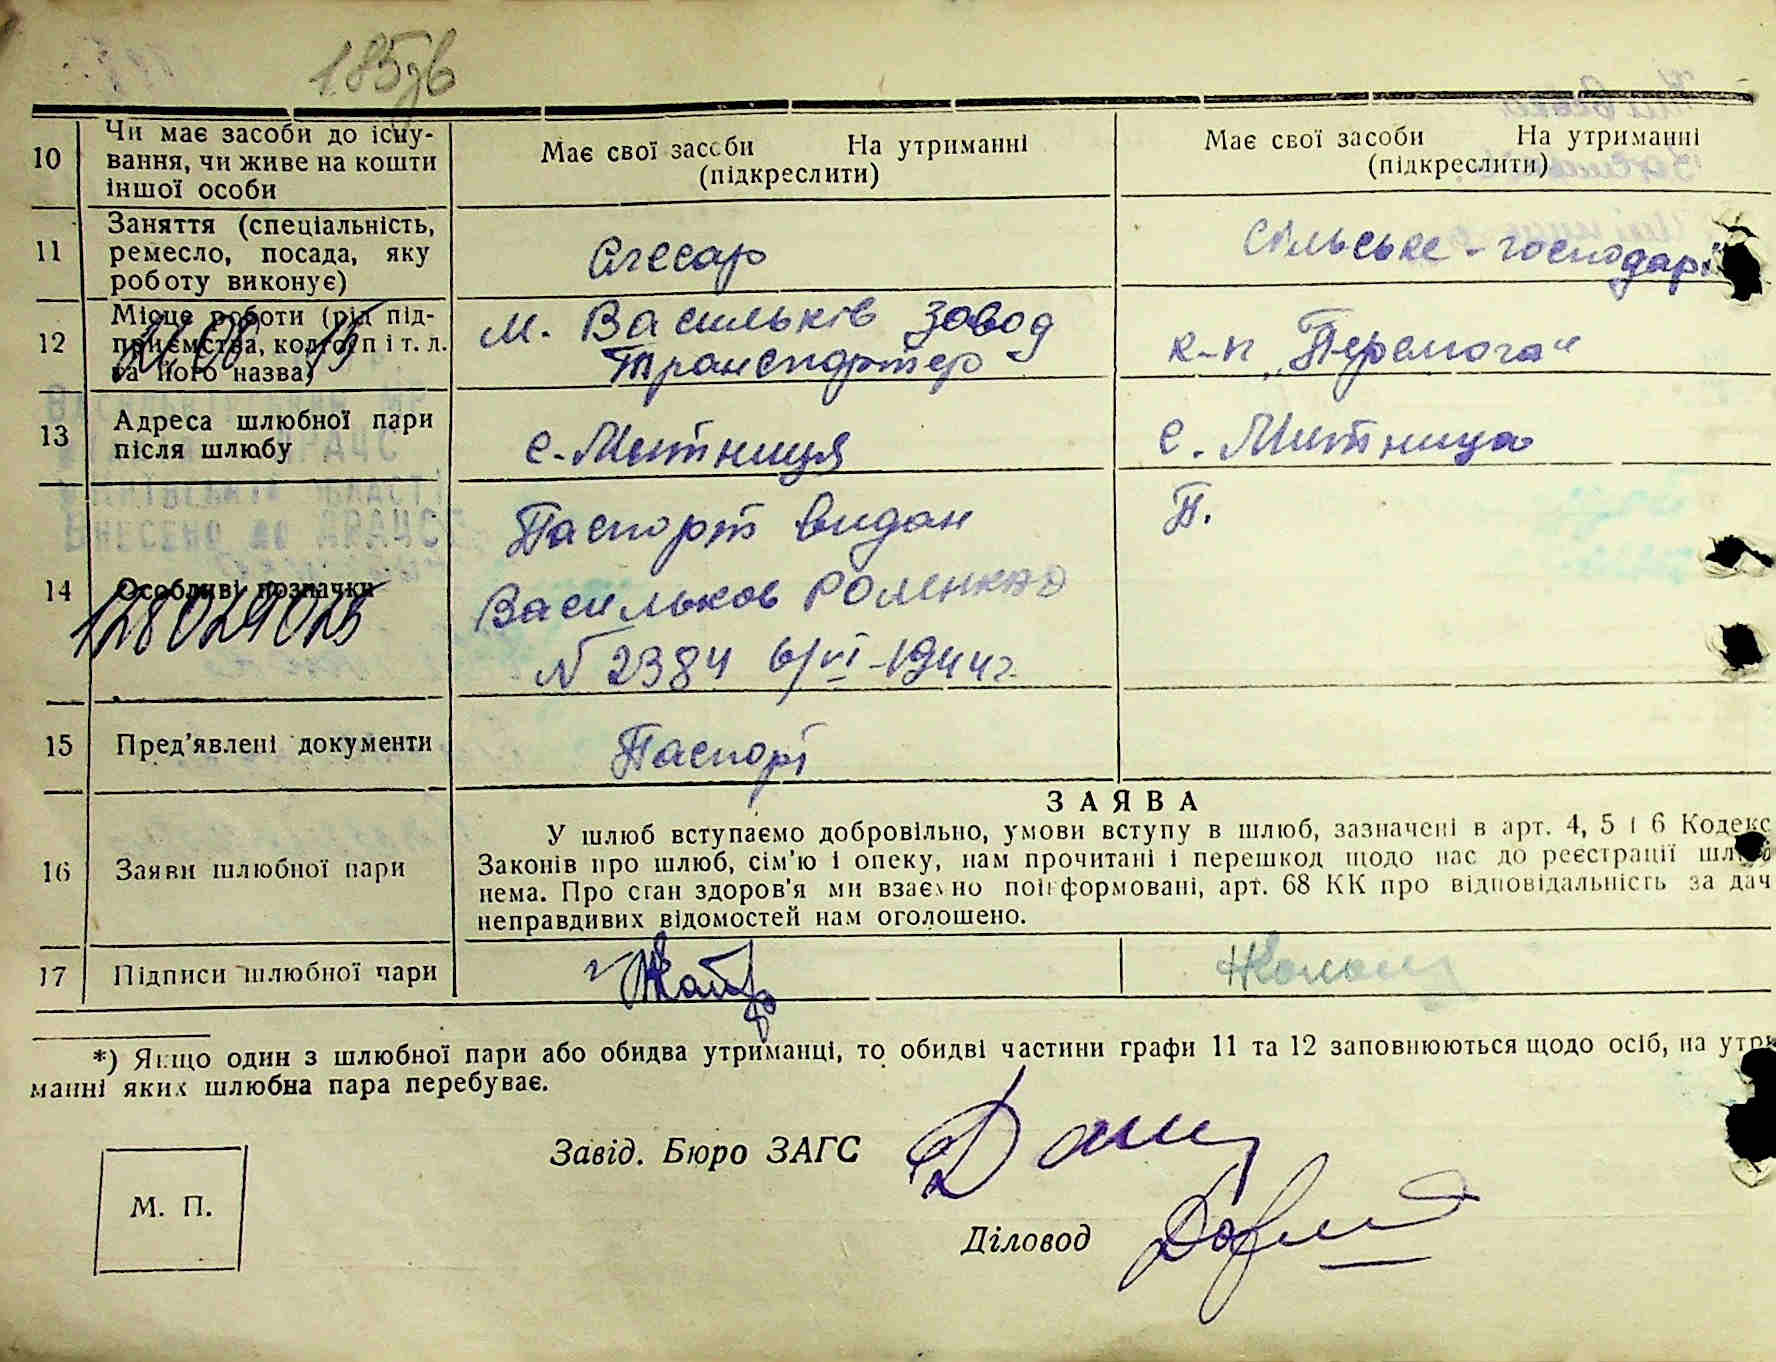 185зв
10 Чи має засоби до існу-
вання, чи живе на кошти
іншої особи
Має свої засоби На утриманні
(підкреслити)
Має свої засоби На утриманні
(підкреслити)
11 Заняття (спеціальність,
ремесло, посада, яку
роботу виконує)
Слесар
Сільське-господар
12 Місце роботи (рід під-
приємства, колгосп і т. л.
та його назва)
м. Васильків завод
Транспортер
к-п „Перемога"
13 Адреса шлюбної пари
після шлюбу
с. Митниця
с. Митница
14 Особливі позначки
12802902б
Паспорт видан
Васильков РОМ НКВД
N 2384 6/VI-1944г.
П.
15 Пред'явлені документи
Паспорт
16 Заяви шлюбної пари
ЗАЯВА
У шлюб вступаємо добровільно, умови вступу в шлюб, зазначені в арт. 4, 5 і 6 Кодекс
Законів про шлюб, сім'ю і опеку, нам прочитані і перешкод щодо нас до реєстрації шл
нема. Про стан здоров'я ми взаємно поінформовані, арт. 68 КК про відповідальність за дач
неправдивих відомостей нам оголошено.
17 Підписи шлюбної пари
*) Якщо один з шлюбної пари або обидва утриманці, то обидві частини графи 11 та 12 заповнюються щодо осіб, на утри
манні яких шлюбна пара перебуває.
Завід. Бюро ЗАГС
М. П.
Діловод